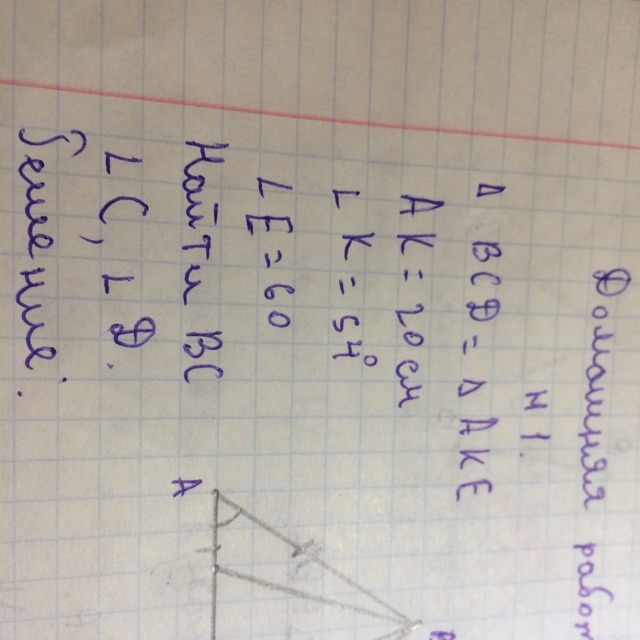 Домашняя работ
N 1
Δ BCD = Δ AKE
AK = 20 см
∠ K = 54°
∠ E = 60
Найти BC
∠ C, ∠ D.
Решение.
A